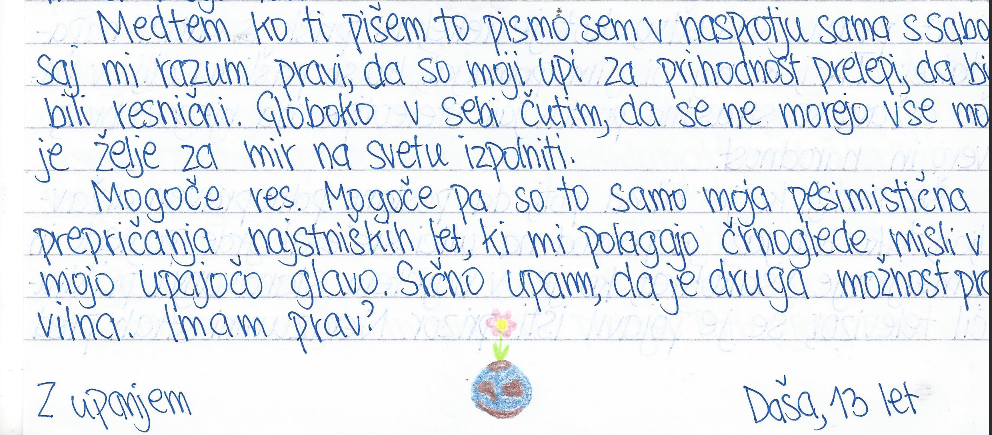 Medtem ko ti pišem to pismo sem v nasprotju sama s sabo
saj mi razum pravi, da so moji upi za prihodnost prelepi, da bi
bili resnični. Globoko v sebi čutim, da se ne morejo vse mo
je želje za mir na svetu izpolniti.
Mogoče res. Mogoče pa so to samo moja pesimistična
prepričanja najstniških let, ki mi polagajo črnoglede misli v
mojo upajočo glavo. Srčno upam, da je druga možnost pra
vilna. Imam prav?
Z upanjem
Daša, 13 let